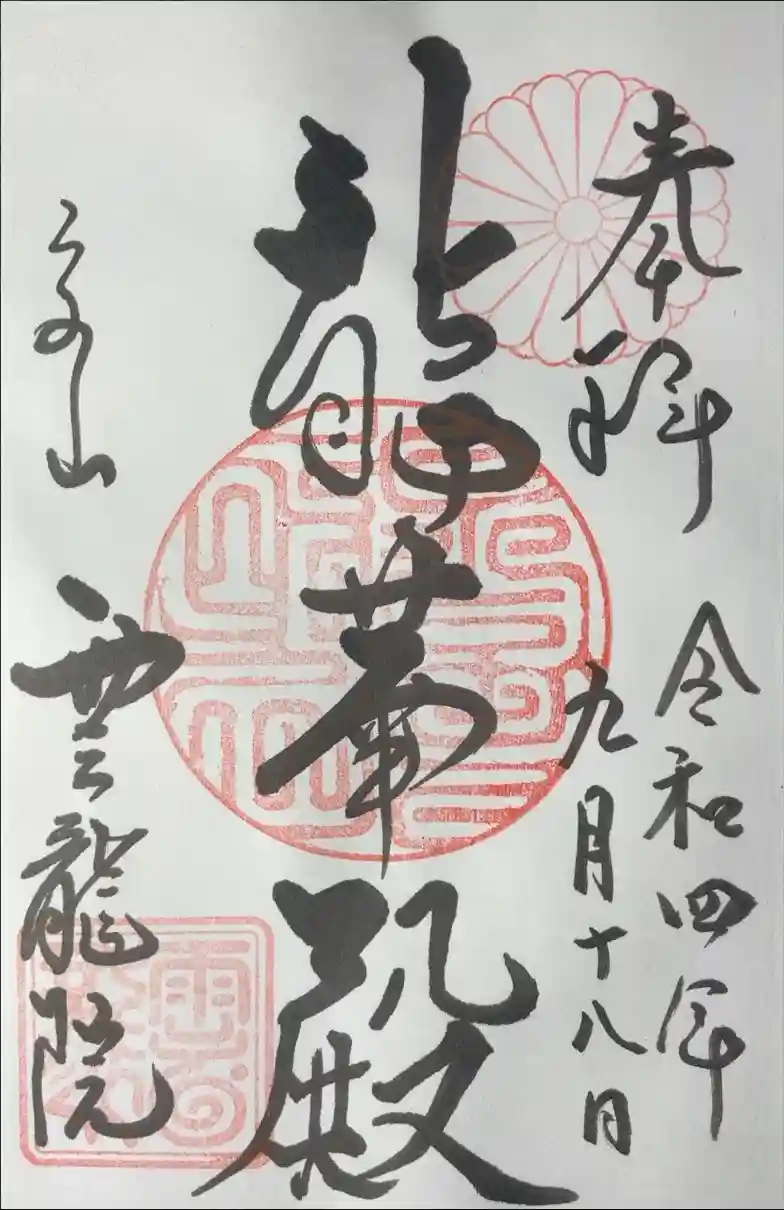 奉拝
令和四年
九月十八日
龍華殿
泉山 雲龍院